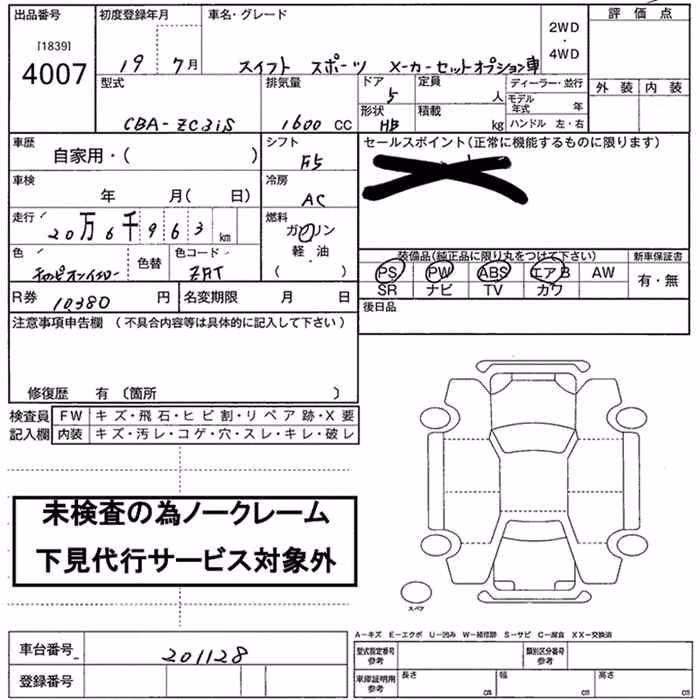 出品番号 初度登録年月 車名・グレード 2WD 評価点
[1839] 19 7月 スイフト スポーツ メーカーセットオプション車 4WD
4007 型式 排気量 ドア 定員 ディーラー・並行 外装 内装
5 人 モデル年式 年
CBA-ZC31S 1600 CC 形状 積載 ハンドル 左・右
HB kg
車歴 シフト セールスポイント(正常に機能するものに限ります)
自家用・( ) F5
車検 冷房
年 月( 日) AC
走行 燃料
20万6千963 km ガソリン
色 色替 色コード 軽・油 装備品(純正品に限り丸をつけて下さい) 新車保証書
チャンピオンイエロー ZFT ( ) PS PW ABS エアB AW 有・無
SR ナビ TV カワ
R券 10380 円 名変期限 月 日 後日品
注意事項申告欄 (不具合内容等は具体的に記入して下さい)
修復歴 有 〔箇所 〕
検査員 FW キズ・飛石・ヒビ割・リペア跡・X要
記入欄 内装 キズ・汚レ・コゲ・穴・スレ・キレ・破レ
未検査の為ノークレーム
下見代行サービス対象外
スペア
A-キズ E-エクボ U-凹み W-補修跡 S-サビ C-腐食 XX-交換済
車台番号 201128 型式指定番号 参考 類別区分番号 参考
登録番号 車庫証明用 参考 長さ cm 幅 cm 高さ cm